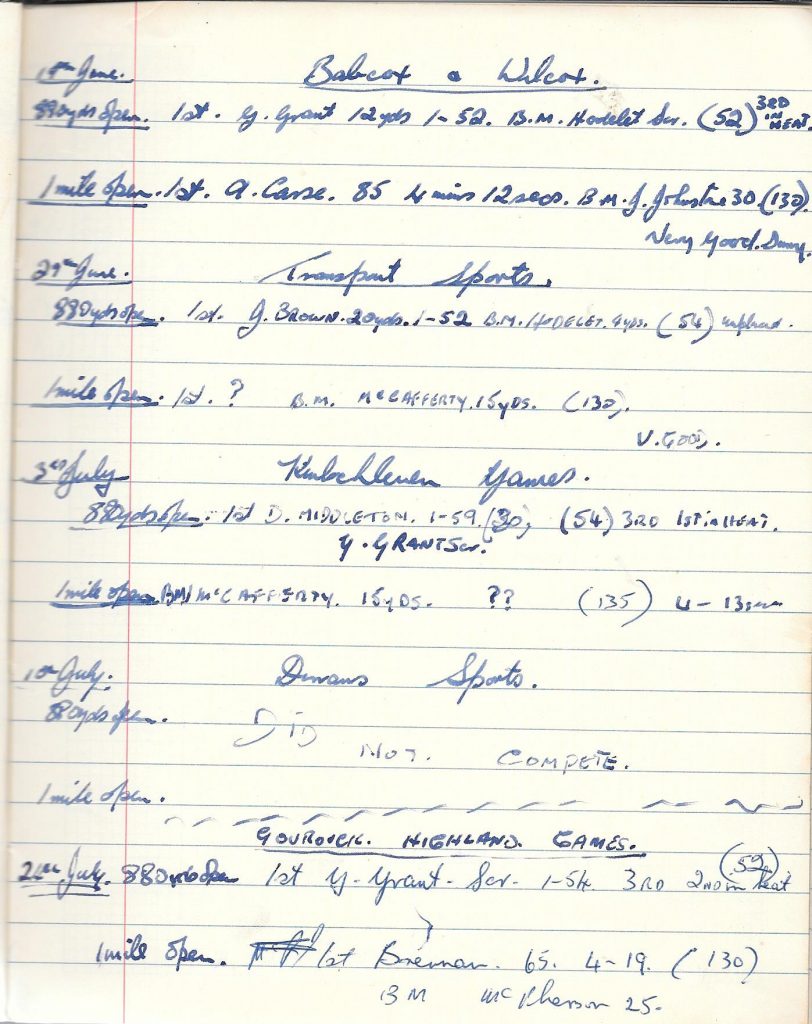 19th June. Babcox & Wilcox.
880yds open. 1st. G. Grant 12yds 1-52. B.M. Hodelet Scr. (52) 3RD IN HEAT
1 mile open. 1st. A. Carse. 85 4 mins 12 secs. B M. J. Johnstne 30. (130)
Very Good. Danny.
29th June. Transport Sports.
880yds open. 1st. J. BROWN. 20yds. 1-52 B.M. HODELET. 4yds. (54)
1 mile open. 1st. ? B.M. McCAFFERTY. 15yDS. (130).
V. GOOD.
3rd July Kinlochleven Games.
880yds open. 1st D. MIDDLETON. 1-59. (30), (54) 3RD 1ST in HEAT.
G. GRANT Scr.
1 mile open BM McCAFFERTY. 15yDS. ?? (135) 4-13secs
10th July. Sports.
880yds open. DID
NOT. COMPETE.
1 mile open.
GOUROCK. HIGHLAND. GAMES.
(52)
24th July. 880yds open 1st G. Grant. Scr. 1-54. 3RD 2ND in heat
1 mile open. 1st Brennan. 65. 4-19. (130)
B M McPherson 25.